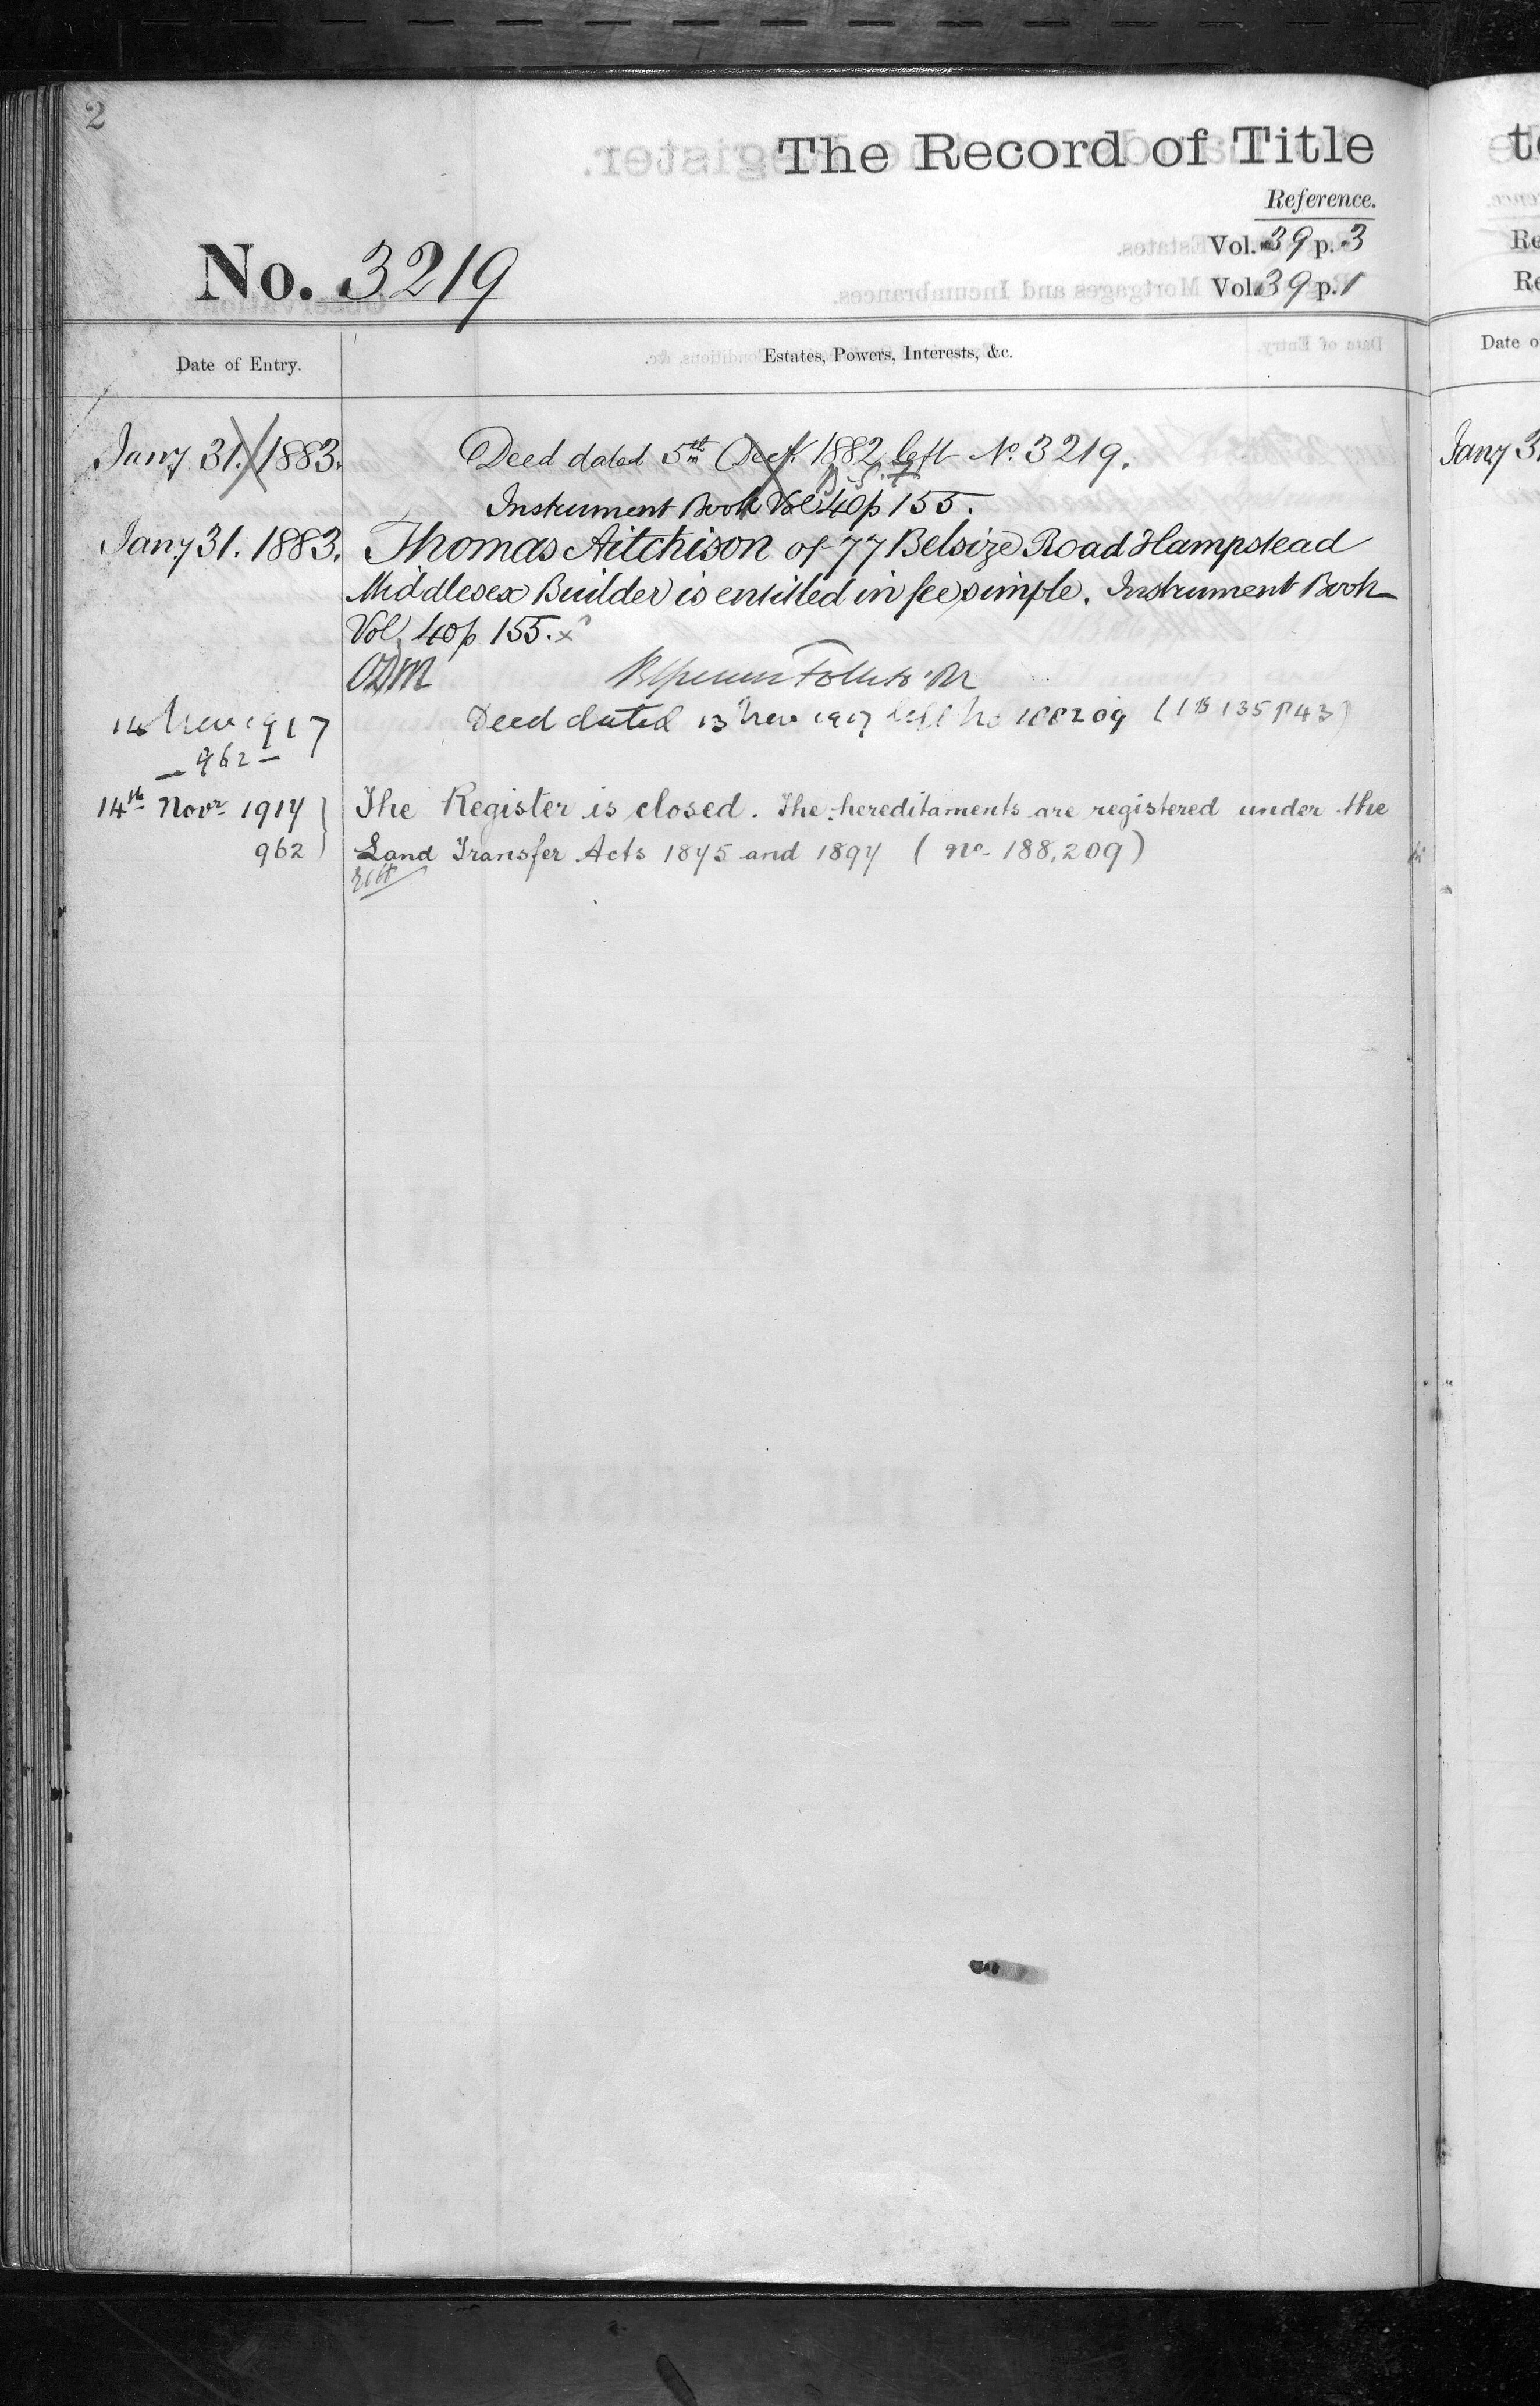 2
The Record of Title
Reference.
Vol. 39 p. 3
Vol. 39 p. 1
No. 3219
Date of Entry.
Estates, Powers, Interests, &c.
Jany 31. 1883.
Deed dated 5th Decr. 1882 left No. 3219.
Instrument Book Vol 40 p 155.
Jany 31. 1883.
Thomas Aitchison of 77 Belsize Road Hampstead
Middlesex Builder is entitled in fee simple. Instrument Book
Vol. 40 p 155.
14 Nov 1917
962
Deed dated 13 Nov 1917 left No 188209 (IB 135 P 43)
14th Novr 1917
962
The Register is closed. The hereditaments are registered under the
Land Transfer Acts 1875 and 1897 (No. 188,209)
to
Re
Re
Date o
Jany 3